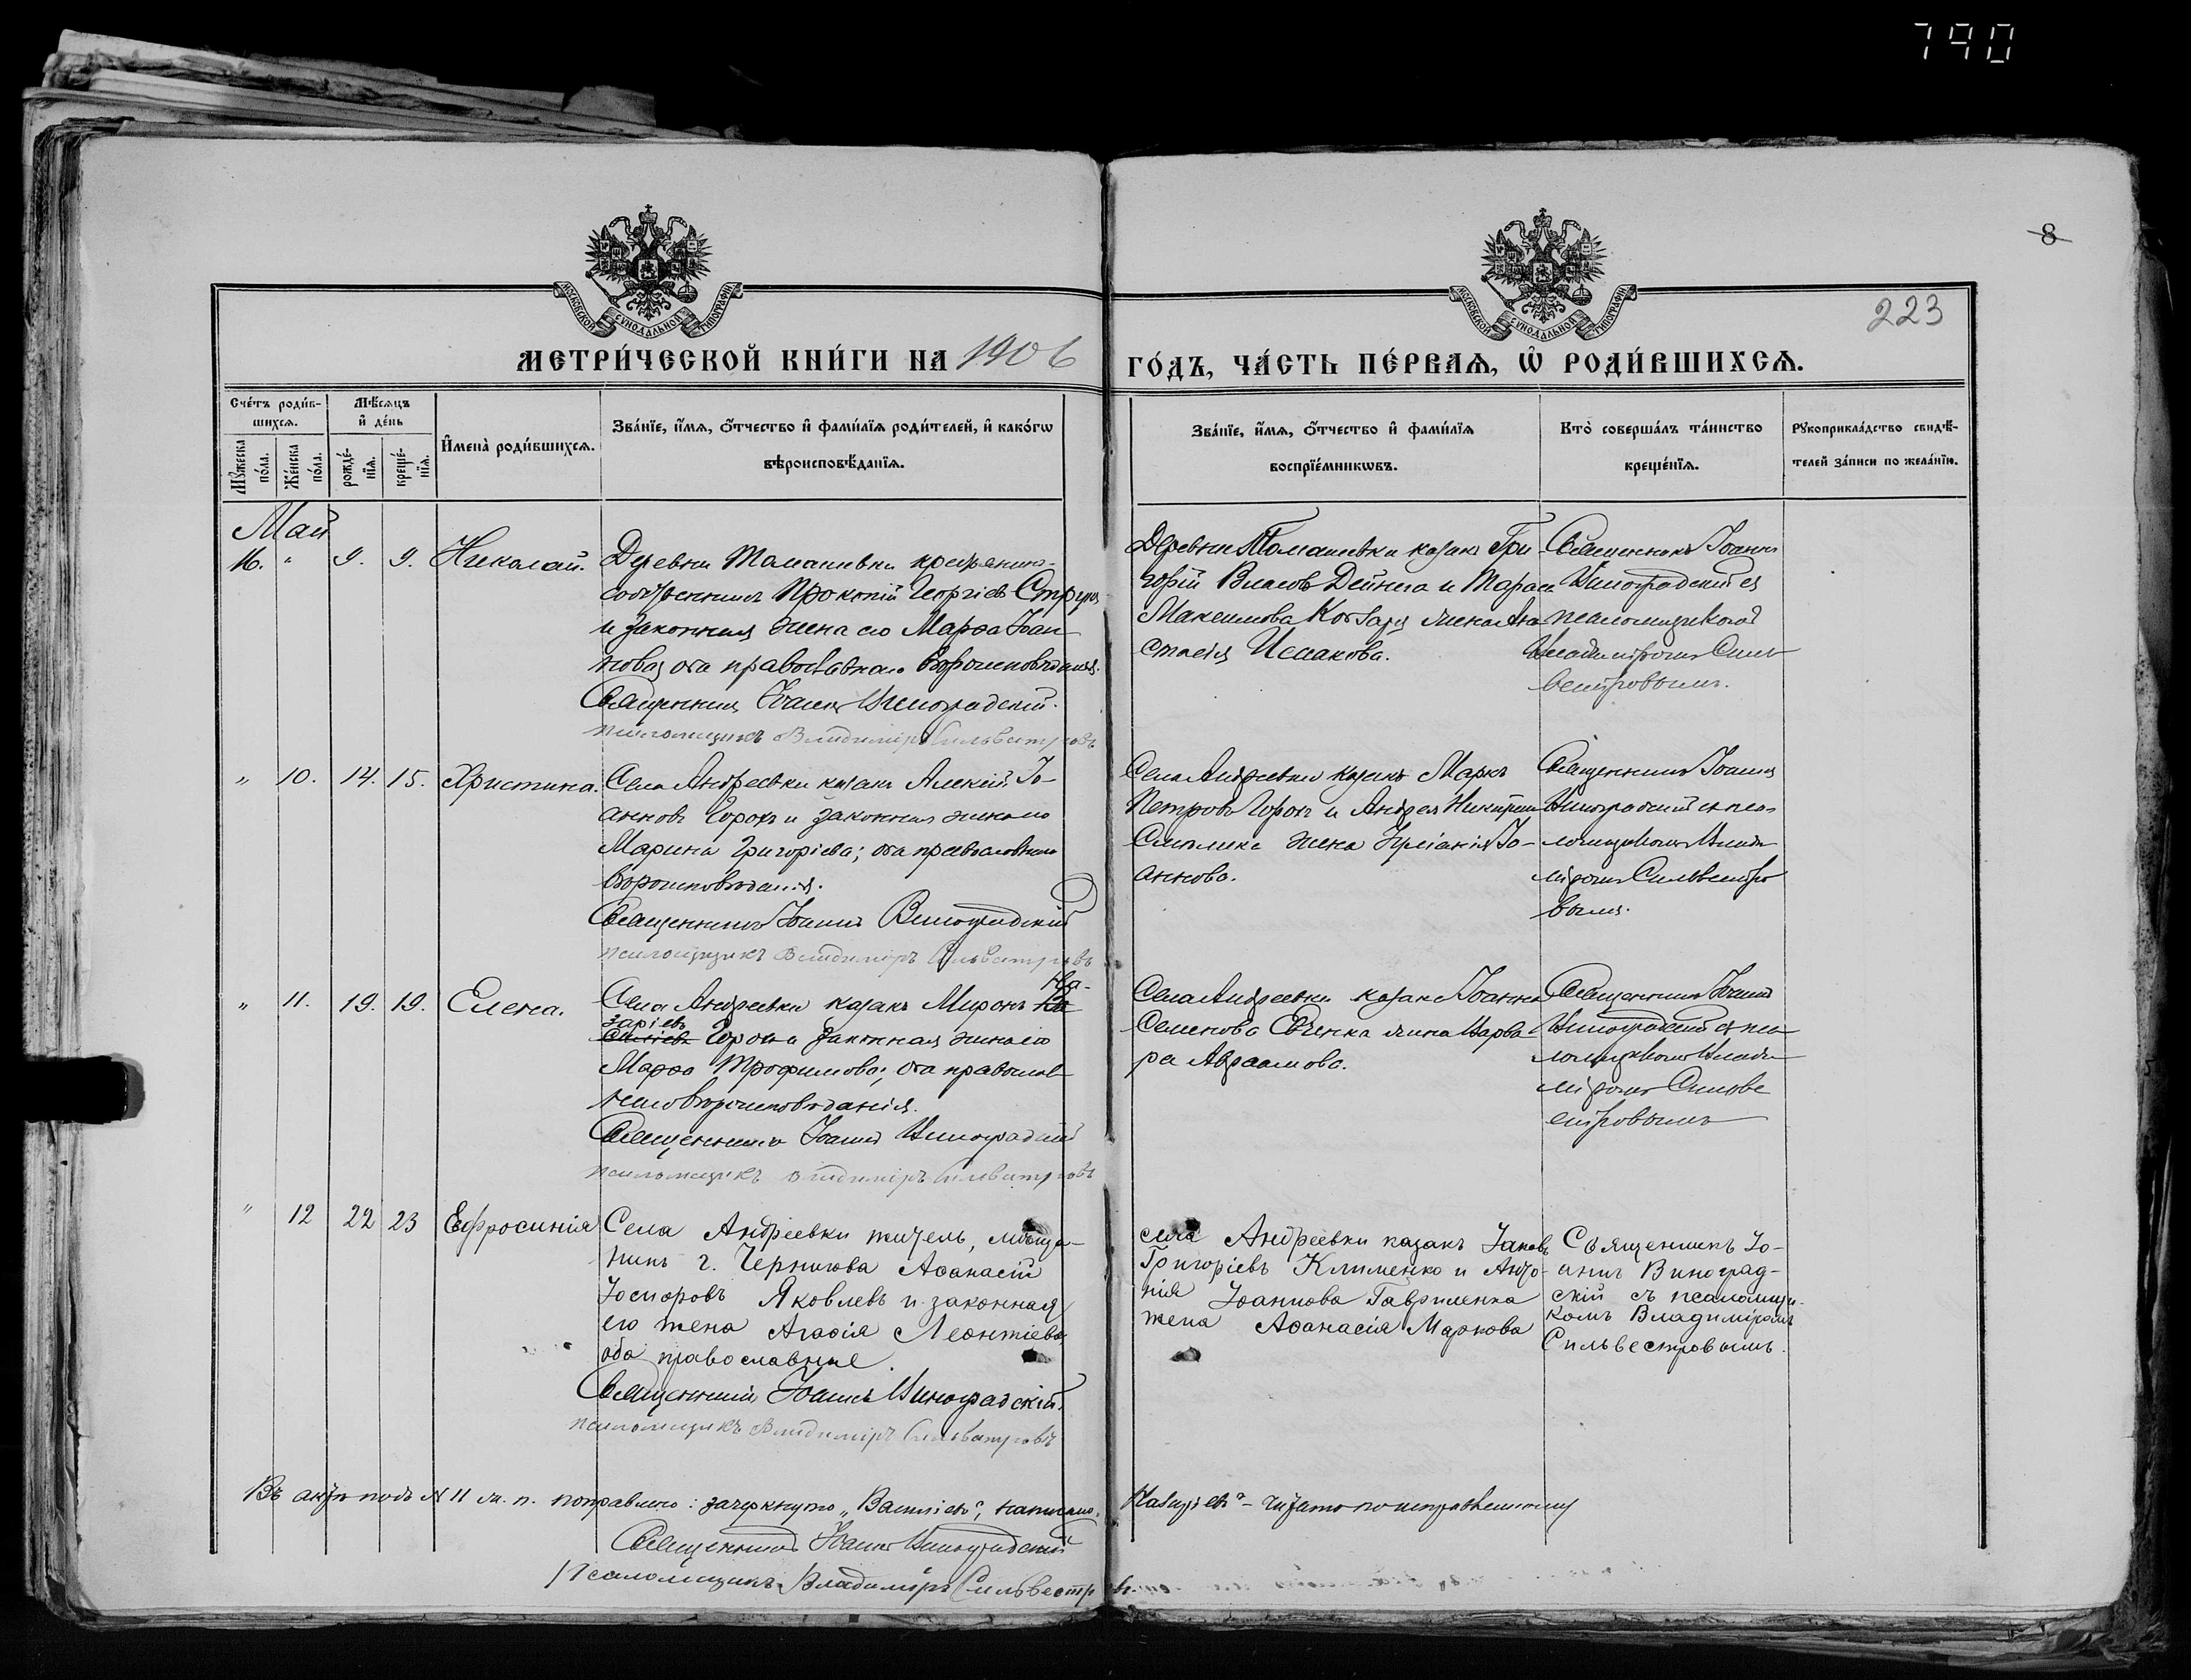 790
8
223
МОСКОВСКОЙ СѴНОДАЛЬНОЙ ТИПОГРАФІИ
МОСКОВСКОЙ СѴНОДАЛЬНОЙ ТИПОГРАФІИ
МЕТРИ́ЧЕСКОЙ КНИ́ГИ НА 1906
ГО́ДЪ, ЧА́СТЬ ПЕ́РВАѦ, Ѡ҆ РОДИ́ВШИХСѦ.
Сче́тъ роди́в-
шихсѧ.
Мꙋ́жеска по́ла.
Же́нска по́ла.
Мѣ́сѧцъ и҆ де́нь
рожде́-нїѧ.
креще́-нїѧ.
И҆мена̀ роди́вшихсѧ.
Зва́нїе, и҆́мѧ, ѻ҆́тчество и҆ фами́лїѧ роди́телей, и҆ како́гѡ
вѣроисповѣ́данїѧ.
Зва́нїе, и҆́мѧ, ѻ҆́тчество и҆ фами́лїѧ
воспрїе́мникѡвъ.
Кто̀ соверша́лъ та́инство
креще́нїѧ.
Рꙋкоприкла́дство свидѣ́-
телей за́писи по жела́нїю.
Май
16. " 9. 9. Николай.
Деревни Томашевки крестьянинъ
собственникъ Прокопій Георгіевъ
и законная жена его Марѳа Іоан-
нова, оба православнаго вѣроисповѣданія.
Священникъ Іоаннъ Виноградскій.
псаломщикъ Владиміръ Сильвестровъ
Деревни Томашевки козакъ Гри-
горій Власовъ Дейнега и Тараса
Максимова Кобзаря жена Ана-
стасія Исаакова.
Священникъ Іоаннъ
Виноградскій съ
псаломщикомъ
Владиміромъ Сильвестровымъ.
" 10. 14. 15. Христина.
Села Андреевки козакъ Алексій Іо-
анновъ Горохъ и законная жена его
Марина Григоріева; оба православнаго
вѣроисповѣданія.
Священникъ Іоаннъ Виноградскій
псаломщикъ Владиміръ Сильвестровъ
Села Андреевки козакъ Маркъ
Петровъ Горохъ и Андрея Никитина
жена Іуліанія Іо-
аннова.
Священникъ Іоаннъ
Виноградскій съ пса-
ломщикомъ Влади-
міромъ Сильвестро-
вымъ.
" 11. 19. 19. Елена.
Села Андреевки козакъ Миронъ На-
заріевъ Горохъ и законная жена его
Марѳа Трофимова; оба православ-
наго вѣроисповѣданія.
Священникъ Іоаннъ Виноградскій
псаломщикъ Владиміръ Сильвестровъ
Села Андреевки козака Іоанна
Семенова Евченка жена Варва-
ра Авраамова.
Священникъ Іоаннъ
Виноградскій съ пса-
ломщикомъ Влади-
міромъ Сильве-
стровымъ
" 12 22 23 Евфросинія
Села Андреевки житель, мѣща-
нинъ г. Чернигова Аѳанасій
Яковлевъ и законная
его жена Агаѳія Леонтіева,
оба православные.
Священникъ Іоаннъ Виноградскій.
псаломщикъ Владиміръ Сильвестровъ
села Андреевки казакъ Іаковъ
Григоріевъ Клименко и Анто-
нія Іоаннова Гавриленка
жена Аѳанасія Маркова
Священникъ Іо-
аннъ Виноград-
скій съ псаломщи-
комъ Владиміромъ
Сильвестровымъ.
Въ актѣ подъ № 11 ж. п. поправлено: зачеркнуто „Василіевъ", написано „Назаріевъ" – читать по исправленному
Священникъ Іоаннъ Виноградскій
Псаломщикъ Владиміръ Сильвестровъ.